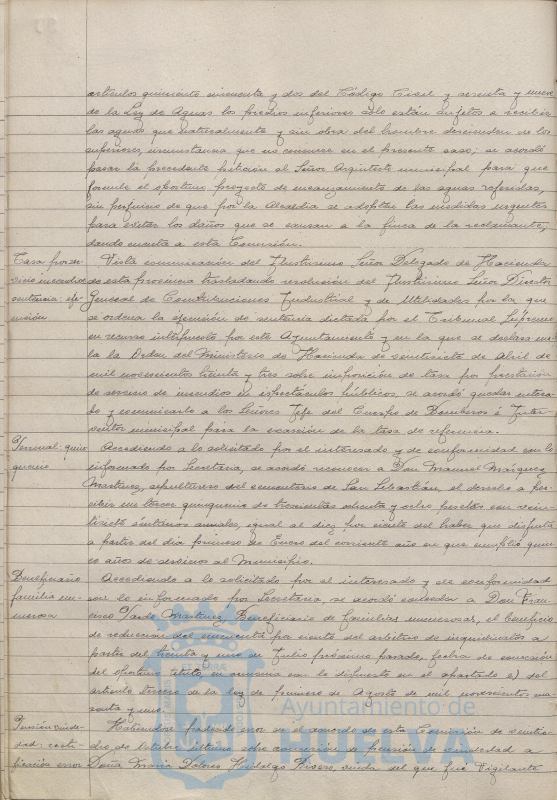 artículos quiniento cincuenta y dos del Código Civil y sesenta y nueve
de la Ley de Aguas los predios inferiores sólo están sujetos a recibir
las aguas que naturalmente y sin obra del hombre descienden de los
superiores, circunstancia que no concurre en el presente caso; se acordó
pasar la precedente petición al Señor Arquitecto municipal para que
formule el oportuno proyecto de encauzamiento de las aguas referidas,
sin perjuicio de que por la Alcaldía se adopten las medidas urgentes
para evitar los daños que se causan a la finca de la reclamante,
dando cuenta a esta Comisión.
Tasa por ser-
vicio incendios
sentencia: eje-
cución
Vista comunicación del Ilustrísimo Señor Delegado de Hacienda
de esta provincia trasladando resolución del Ilustrísimo Señor Director
General de Contribuciones Industrial y de Utilidades por la que
se ordena la ejecución de sentencia dictada por el Tribunal Supremo
en recurso interpuesto por este Ayuntamiento y en la que se declara nu-
la la Orden del Ministerio de Hacienda de veintisiete de Abril de
mil novecientos treinta y tres sobre imposición de tasa por prestación
de servicio de incendios en espectáculos públicos, se acordó quedar entera-
do y comunicarlo a los Señores Jefe del Cuerpo de Bomberos é Inter-
ventor municipal para la exacción de la tasa de referencia.
Personal: quin-
quenio
Accediendo a lo solicitado por el interesado y de conformidad con lo
informado por Secretaría, se acordó reconocer a Don Manuel Márquez
Martínez, sepulturero del cementerio de San Sebastián, el derecho a per-
cibir un tercer quinquenio de trescientas ochenta y ocho pesetas con vein-
tisiete céntimos anuales, igual al diez por ciento del haber que disfruta
a partir del día primero de Enero del corriente año en que cumplió quin-
ce años de servicios al Municipio.
Beneficiario
familia nu-
merosa
Accediendo a lo solicitado por el interesado y de conformidad
con lo informado por Secretaría se acordó conceder a Don Fran-
cisco Martínez, Beneficiario de familias numerosas, el beneficio
de reducción del cincuenta por ciento del arbitrio de inquilinatos a
partir del treinta y uno de Julio próximo pasado, fecha de concesión
del oportuno título, en armonía con lo dispuesto en el apartado e) del
artículo tercero de la ley de primero de Agosto de mil novecientos cua-
renta y uno.
Pensión viude-
dad: recti-
ficación error
Habiéndose padecido error en el acuerdo de esta Comisión de veintio-
cho de Octubre último sobre concesión de pensión de viudedad a
Doña María Dolores Hidalgo Rivero, viuda del que fué Vigilante
Ayuntamiento de
HUELVA